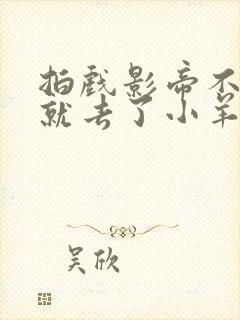 拍戏影帝不
就去了小羊
吴欣